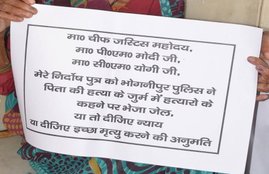 मा० चीफ जस्टिस महोदय,
मा० पी०एम० मोदी जी,
मा० सी०एम० योगी जी,
मेरे निर्दोष पुत्र को भोगनीपुर पुलिस ने
पिता की हत्या के जुर्म में हत्यारो के
कहने पर भेजा जेल.
या तो दीजिए न्याय
या दीजिए इच्छा मृत्यु करने की अनुमति